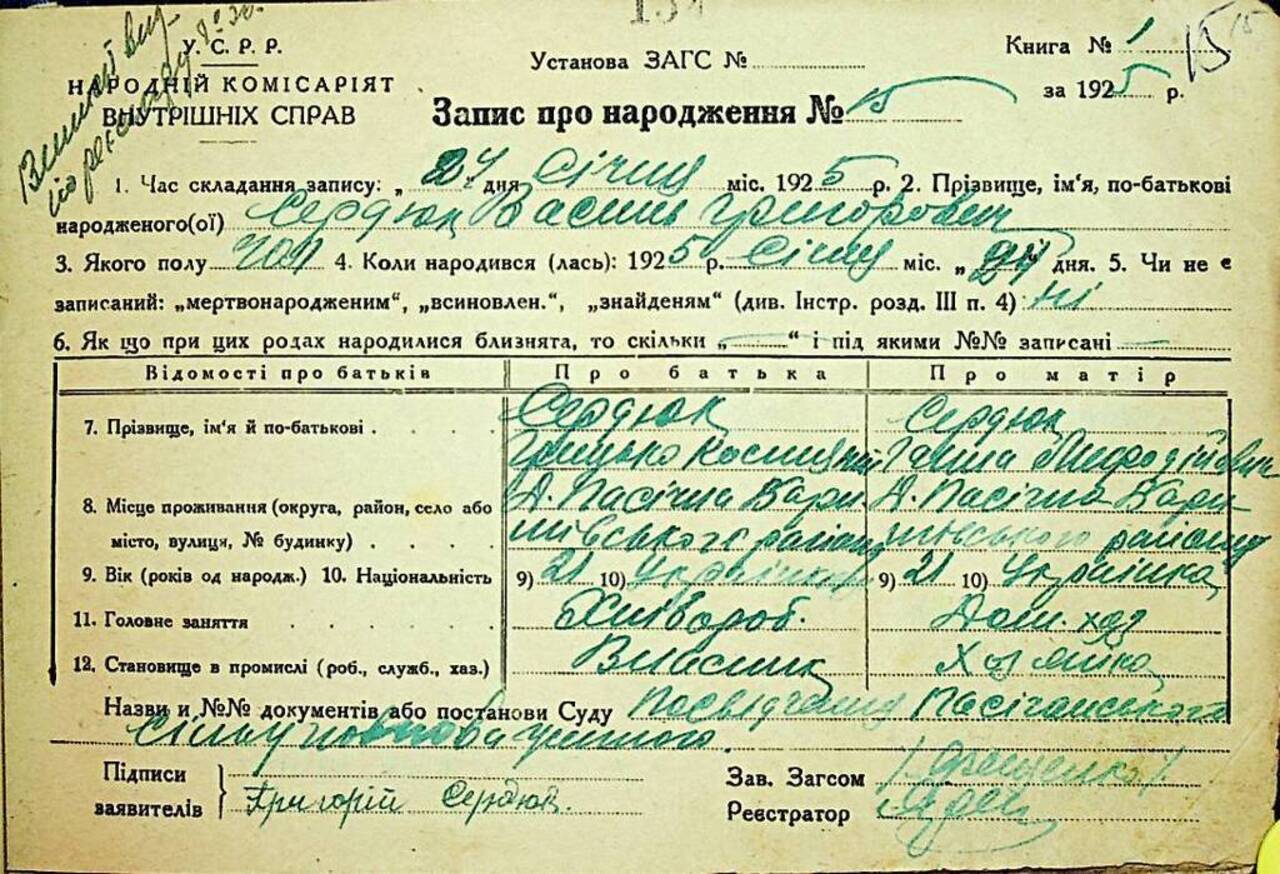 У. С. Р. Р.
НАРОДНІЙ КОМІСАРІЯТ
ВНУТРІШНІХ СПРАВ
Установа ЗАГС №
Книга № 1
15
за 1925 р.
Запис про народження № 15
1. Час складання запису: „ 24 " дня Січня міс. 1925 р. 2. Прізвище, ім'я, по-батькові
народженого(ої) Сердюк Василь Григорович
3. Якого полу чол 4. Коли народився (лась): 1925 р. Січня міс. „ 24 " дня. 5. Чи не є
записаний: „мертвонародженим", „всиновлен.", „знайденям" (див. Інстр. розд. III п. 4) ні
6. Як що при цих родах народилися близнята, то скільки „ " і під якими №№ записані
Відомості про батьків Про батька Про матір
7. Прізвище, ім'я й по-батькові Сердюк Сердюк
Грицько Ганна
8. Місце проживання (округа, район, село або Пасічна Бари- Пасічна Бари-
місто, вулиця, № будинку) шівського району шівського району
9. Вік (років од народж.) 10. Національність 9) 21 10) 9) 21 10) Українка
11. Головне заняття Хлібороб. Дом. хаз
12. Становище в промислі (роб., служб., хаз.) Власник Хазяйка
Назви и №№ документів або постанови Суду Посвідчення Пасічанського
Підписи
заявителів Григорій Сердюк.
Зав. Загсом
Реєстратор